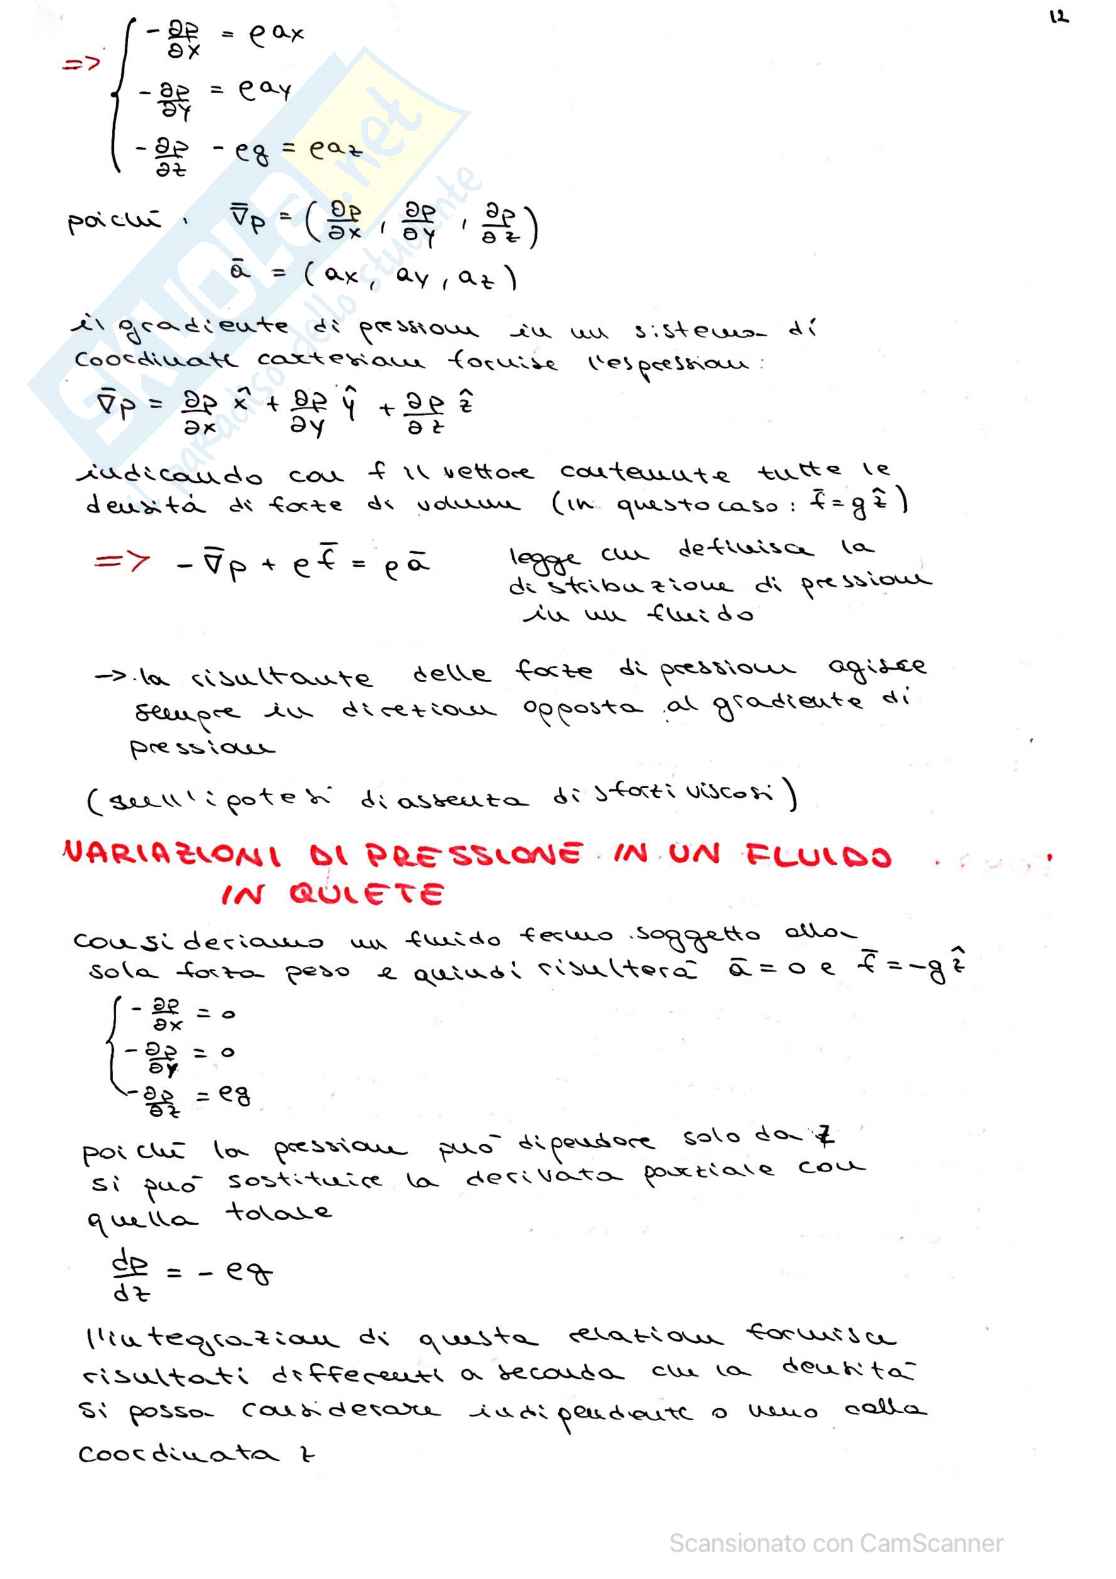 12
=> { -∂p/∂x = ρax
-∂p/∂y = ρay
-∂p/∂z - ρg = ρaz
poiché . ∇̄p = (∂p/∂x , ∂p/∂y , ∂p/∂z)
ā = (ax, ay, az)
il gradiente di pressione in un sistema di
coordinate cartesiane fornisce l'espressione:
∇̄p = ∂p/∂x x̂ + ∂p/∂y ŷ + ∂p/∂z ẑ
indicando con f il vettore contenente tutte le
densità di forze di volume (in questo caso: f̄=gẑ)
=> -∇̄p + ρf̄ = ρā
legge che definisce la
distribuzione di pressione
in un fluido
-> la risultante delle forze di pressione agisce
sempre in direzione opposta al gradiente di
pressione
(sull'ipotesi di assenza di sforzi viscosi)
VARIAZIONI DI PRESSIONE IN UN FLUIDO
IN QUIETE
consideriamo un fluido fermo soggetto alla
sola forza peso e quindi risulterà ā=0 e f̄=-gẑ
{ -∂p/∂x = 0
-∂p/∂y = 0
-∂p/∂z = ρg
poiché la pressione può dipendere solo da z
si può sostituire la derivata parziale con
quella totale
dp/dz = - ρg
l'integrazione di questa relazione fornisce
risultati differenti a seconda che la densità
si possa considerare indipendente o meno dalla
coordinata z
SKUOLA.net
il paradiso dello studente
Scansionato con CamScanner